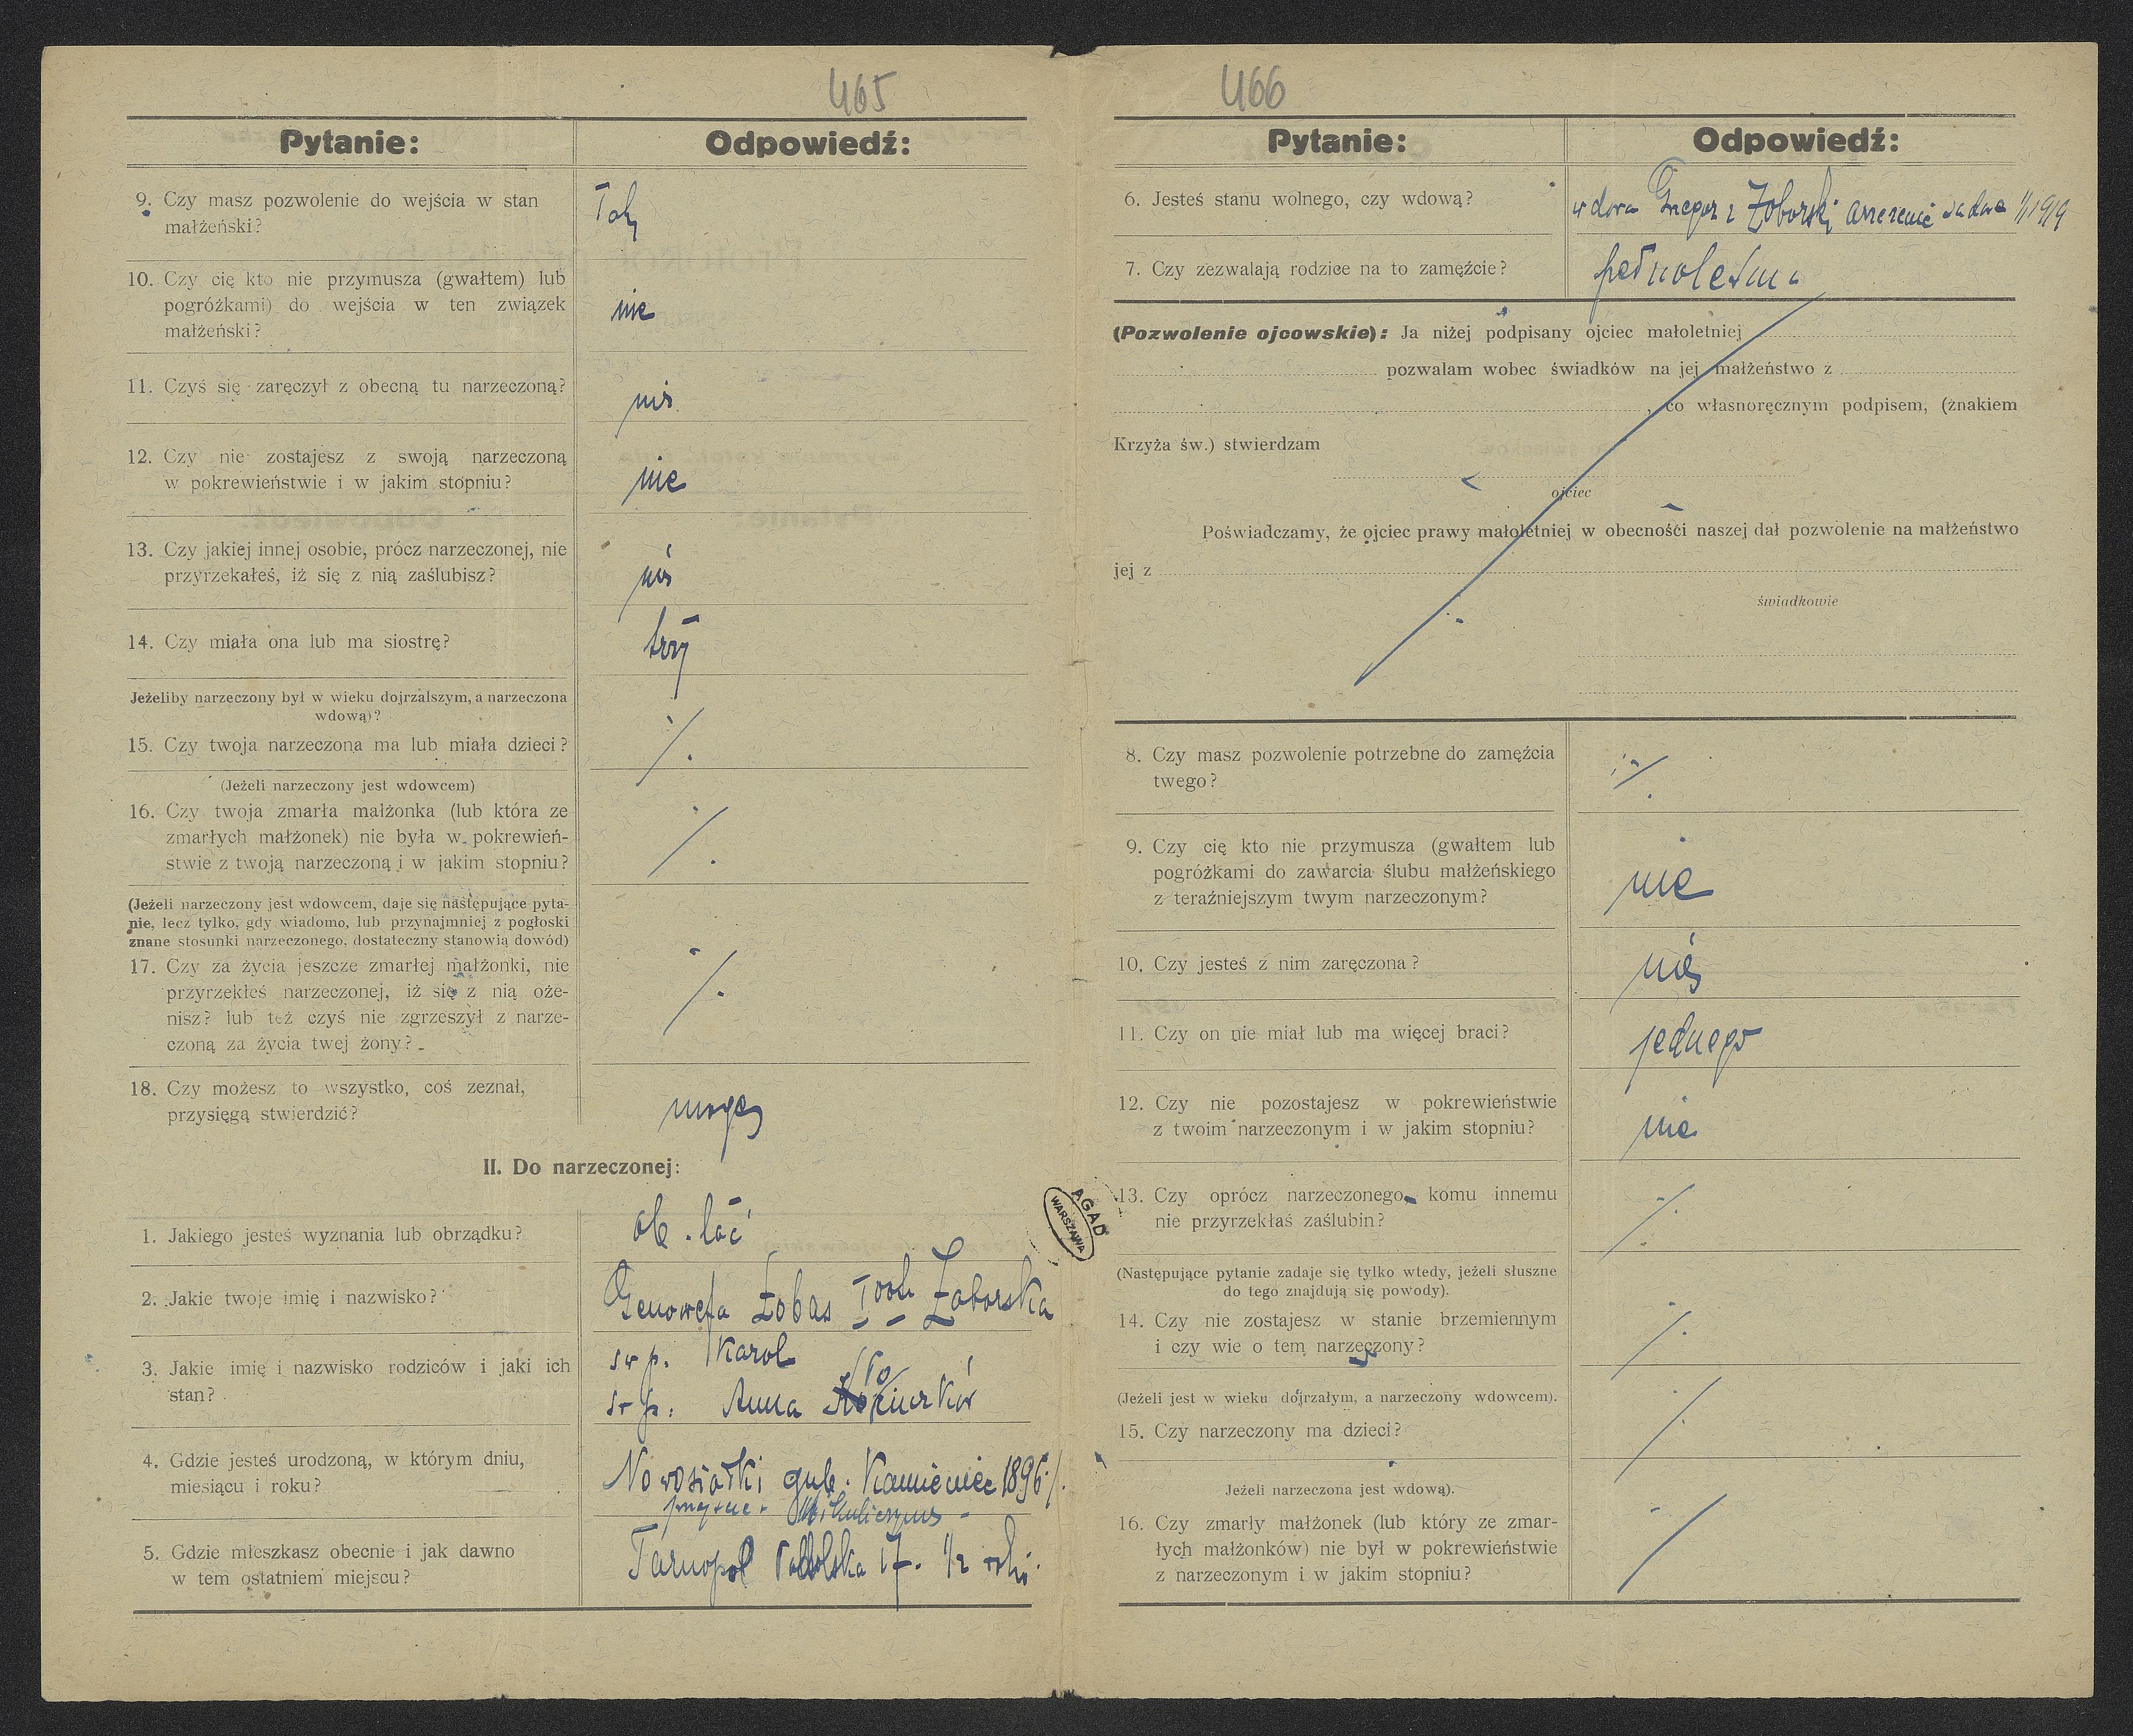 465
Pytanie:
Odpowiedź:
9. Czy masz pozwolenie do wejścia w stan
małżeński?
Tak
10. Czy cię kto nie przymusza (gwałtem) lub
pogróżkami) do wejścia w ten związek
małżeński?
nie
11. Czyś się zaręczył z obecną tu narzeczoną?
12. Czy nie zostajesz z swoją narzeczoną
w pokrewieństwie i w jakim stopniu?
nie
13. Czy jakiej innej osobie, prócz narzeczonej, nie
przyrzekałeś, iż się z nią zaślubisz?
14. Czy miała ona lub ma siostrę?
trzy
Jeżeliby narzeczony był w wieku dojrzalszym, a narzeczona
wdową)?
15. Czy twoja narzeczona ma lub miała dzieci?
(Jeżeli narzeczony jest wdowcem)
16. Czy twoja zmarła małżonka (lub która ze
zmarłych małżonek) nie była w pokrewień-
stwie z twoją narzeczoną i w jakim stopniu?
(Jeżeli narzeczony jest wdowcem, daje się następujące pyta-
nie, lecz tylko, gdy wiadomo, lub przynajmniej z pogłoski
znane stosunki narzeczonego, dostateczny stanowią dowód)
17. Czy za życia jeszcze zmarłej małżonki, nie
przyrzekłeś narzeczonej, iż się z nią oże-
nisz? lub też czyś nie zgrzeszył z narze-
czoną za życia twej żony?
18. Czy możesz to wszystko, coś zeznał,
przysięgą stwierdzić?
mogę
II. Do narzeczonej:
1. Jakiego jesteś wyznania lub obrządku?
ob. łać
2. Jakie twoje imię i nazwisko?
Genowefa Łobas Zaborska
3. Jakie imię i nazwisko rodziców i jaki ich
stan?
św p. Karol
św p. Anna
4. Gdzie jesteś urodzoną, w którym dniu,
miesiącu i roku?
Nowosiółki gub. Kamieniec 1896
5. Gdzie mieszkasz obecnie i jak dawno
w tem ostatniem miejscu?
Tarnopol Podolska 17. 1/2 roku.
AGAD
WARSZAWA
466
Pytanie:
Odpowiedź:
6. Jesteś stanu wolnego, czy wdową?
wdowa Grzegorz Zaborski 1919
7. Czy zezwalają rodzice na to zamęźcie?
pełnoletnia
(Pozwolenie ojcowskie): Ja niżej podpisany ojciec małoletniej
pozwalam wobec świadków na jej małżeństwo z
, co własnoręcznym podpisem, (żnakiem
Krzyża św.) stwierdzam
ojciec
Poświadczamy, że ojciec prawy małoletniej w obecnośći naszej dał pozwolenie na małżeństwo
jej z
świadkowie
8. Czy masz pozwolenie potrzebne do zamęźcia
twego?
9. Czy cię kto nie przymusza (gwałtem lub
pogróżkami do zawarcia ślubu małżeńskiego
z teraźniejszym twym narzeczonym?
nie
10. Czy jesteś z nim zaręczona?
11. Czy on nie miał lub ma więcej braci?
jednego
12. Czy nie pozostajesz w pokrewieństwie
z twoim narzeczonym i w jakim stopniu?
nie
13. Czy oprócz narzeczonego komu innemu
nie przyrzekłaś zaślubin?
(Następujące pytanie zadaje się tylko wtedy, jeżeli słuszne
do tego znajdują się powody).
14. Czy nie zostajesz w stanie brzemiennym
i czy wie o tem narzeczony?
(Jeżeli jest w wieku dojrzałym, a narzeczony wdowcem).
15. Czy narzeczony ma dzieci?
Jeżeli narzeczona jest wdową).
16. Czy zmarły małżonek (lub który ze zmar-
łych małżonków) nie był w pokrewieństwie
z narzeczonym i w jakim stopniu?